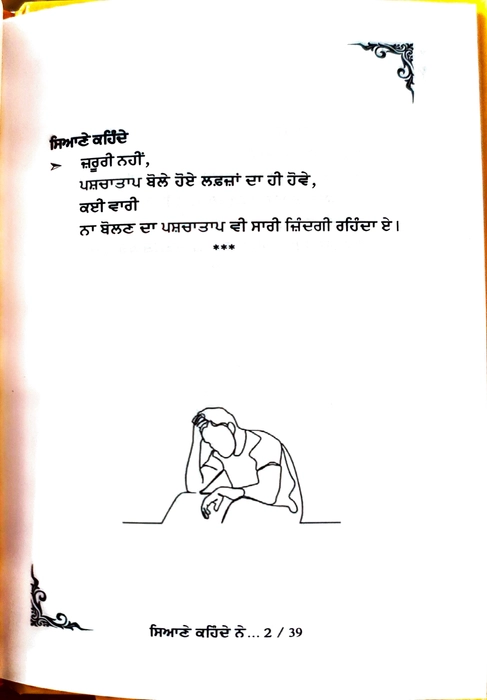 ਸਿਆਣੇ ਕਹਿੰਦੇ
➢ ਜ਼ਰੂਰੀ ਨਹੀਂ,
ਪਸ਼ਚਾਤਾਪ ਬੋਲੇ ਹੋਏ ਲਫ਼ਜ਼ਾਂ ਦਾ ਹੀ ਹੋਵੇ,
ਕਈ ਵਾਰੀ
ਨਾ ਬੋਲਣ ਦਾ ਪਸ਼ਚਾਤਾਪ ਵੀ ਸਾਰੀ ਜ਼ਿੰਦਗੀ ਰਹਿੰਦਾ ਏ।
***
ਸਿਆਣੇ ਕਹਿੰਦੇ ਨੇ... 2 / 39